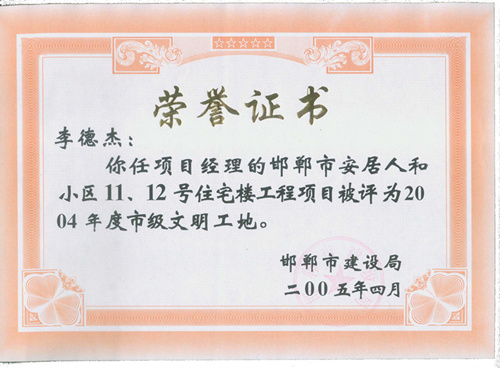 荣誉证书
李德杰：
你任项目经理的邯郸市安居人和
小区11、12号住宅楼工程项目被评为20
04年度市级文明工地。
邯郸市建设局
二00五年四月